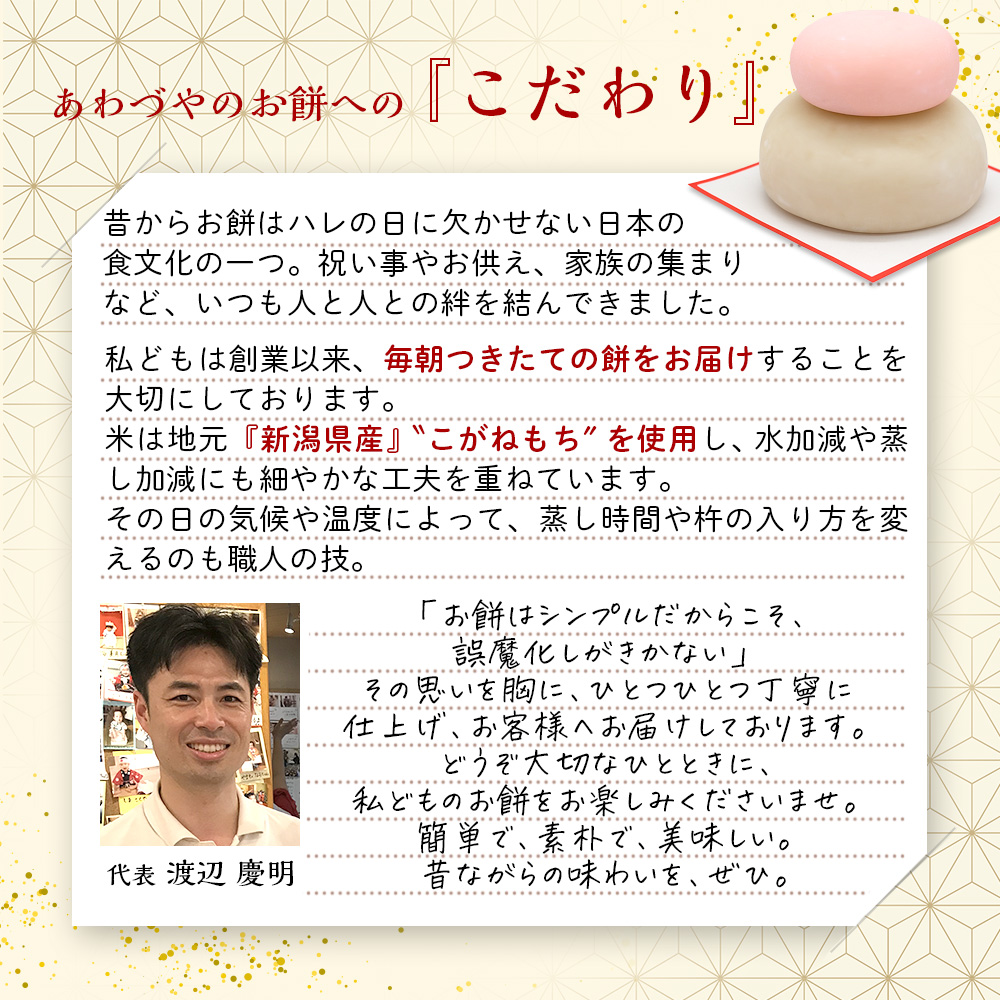 あわづやのお餅への『こだわり』
昔からお餅はハレの日に欠かせない日本の
食文化の一つ。祝い事やお供え、家族の集まり
など、いつも人と人との絆を結んできました。
私どもは創業以来、毎朝つきたての餅をお届けすることを
大切にしております。
米は地元『新潟県産』〝こがねもち〟を使用し、水加減や蒸
し加減にも細やかな工夫を重ねています。
その日の気候や温度によって、蒸し時間や杵の入り方を変
えるのも職人の技。
「お餅はシンプルだからこそ、
誤魔化しがきかない」
その思いを胸に、ひとつひとつ丁寧に
仕上げ、お客様へお届けしております。
どうぞ大切なひとときに、
私どものお餅をお楽しみくださいませ。
簡単で、素朴で、美味しい。
昔ながらの味わいを、ぜひ。
代表 渡辺 慶明